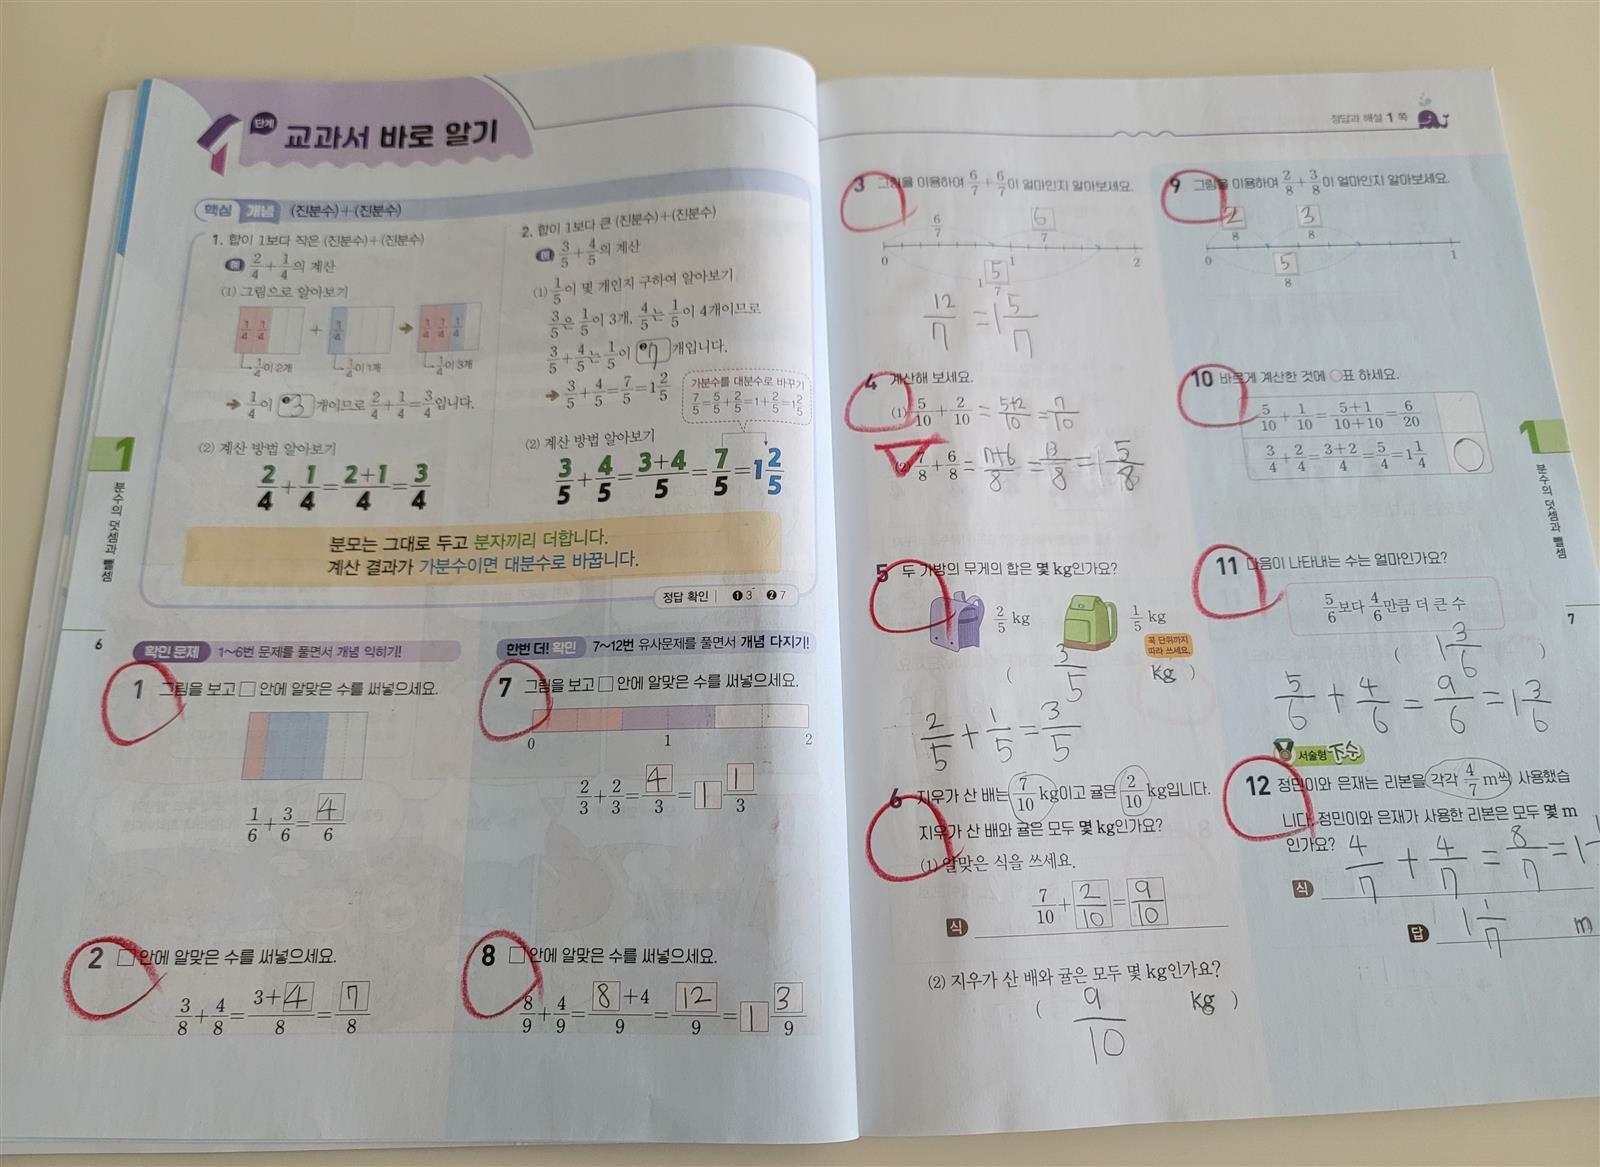 1단계 교과서 바로 알기
핵심 개념 (진분수)+(진분수)
1. 합이 1보다 작은 (진분수)+(진분수)
예 2/4+1/4의 계산
(1) 그림으로 알아보기
1/4 1/4 + 1/4 → 1/4 1/4 1/4
1/4이 2개 1/4이 1개 1/4이 3개
→ 1/4이 ❶3 개이므로 2/4+1/4=3/4입니다.
(2) 계산 방법 알아보기
2/4+1/4=2+1/4=3/4
2. 합이 1보다 큰 (진분수)+(진분수)
예 3/5+4/5의 계산
(1) 1/5이 몇 개인지 구하여 알아보기
3/5은 1/5이 3개, 4/5는 1/5이 4개이므로
3/5+4/5는 1/5이 ❷7 개입니다.
→ 3/5+4/5=7/5=1 2/5
가분수를 대분수로 바꾸기
7/5=5/5+2/5=1+2/5=1 2/5
(2) 계산 방법 알아보기
3/5+4/5=3+4/5=7/5=1 2/5
분모는 그대로 두고 분자끼리 더합니다.
계산 결과가 가분수이면 대분수로 바꿉니다.
정답 확인 | ❶ 3 ❷ 7
1
분수의 덧셈과 뺄셈
6
확인 문제 1~6번 문제를 풀면서 개념 익히기!
1 그림을 보고 □ 안에 알맞은 수를 써넣으세요.
1/6+3/6=4/6
2 □ 안에 알맞은 수를 써넣으세요.
3/8+4/8=3+4/8=7/8
한번 더! 확인 7~12번 유사문제를 풀면서 개념 다지기!
7 그림을 보고 □ 안에 알맞은 수를 써넣으세요.
0 1 2
2/3+2/3=4/3=1 1/3
8 □ 안에 알맞은 수를 써넣으세요.
8/9+4/9=8+4/9=12/9=1 3/9
정답과 해설 1쪽
3 그림을 이용하여 6/7+6/7이 얼마인지 알아보세요.
6/7 6/7
0 1 2
1 5/7
12/7=1 5/7
4 계산해 보세요.
(1) 5/10+2/10=5+2/10=7/10
(2) 7/8+6/8=7+6/8=13/8=1 5/8
5 두 가방의 무게의 합은 몇 kg인가요?
2/5 kg 1/5 kg
꼭 단위까지
따라 쓰세요.
( 3/5 kg )
2/5+1/5=3/5
6 지우가 산 배는 7/10 kg이고 귤은 2/10 kg입니다.
지우가 산 배와 귤은 모두 몇 kg인가요?
(1) 알맞은 식을 쓰세요.
식 7/10+2/10=9/10
(2) 지우가 산 배와 귤은 모두 몇 kg인가요?
( 9/10 kg )
9 그림을 이용하여 2/8+3/8이 얼마인지 알아보세요.
2/8 3/8
0 1
5/8
10 바르게 계산한 것에 ○표 하세요.
5/10+1/10=5+1/10+10=6/20
3/4+2/4=3+2/4=5/4=1 1/4 ○
11 다음이 나타내는 수는 얼마인가요?
5/6보다 4/6만큼 더 큰 수
( 1 3/6 )
5/6+4/6=9/6=1 3/6
서술형 下수
12 정민이와 은재는 리본을 각각 4/7 m씩 사용했습
니다. 정민이와 은재가 사용한 리본은 모두 몇 m
인가요?
식 4/7+4/7=8/7=1
답 1 1/7 m
1
분수의 덧셈과 뺄셈
7